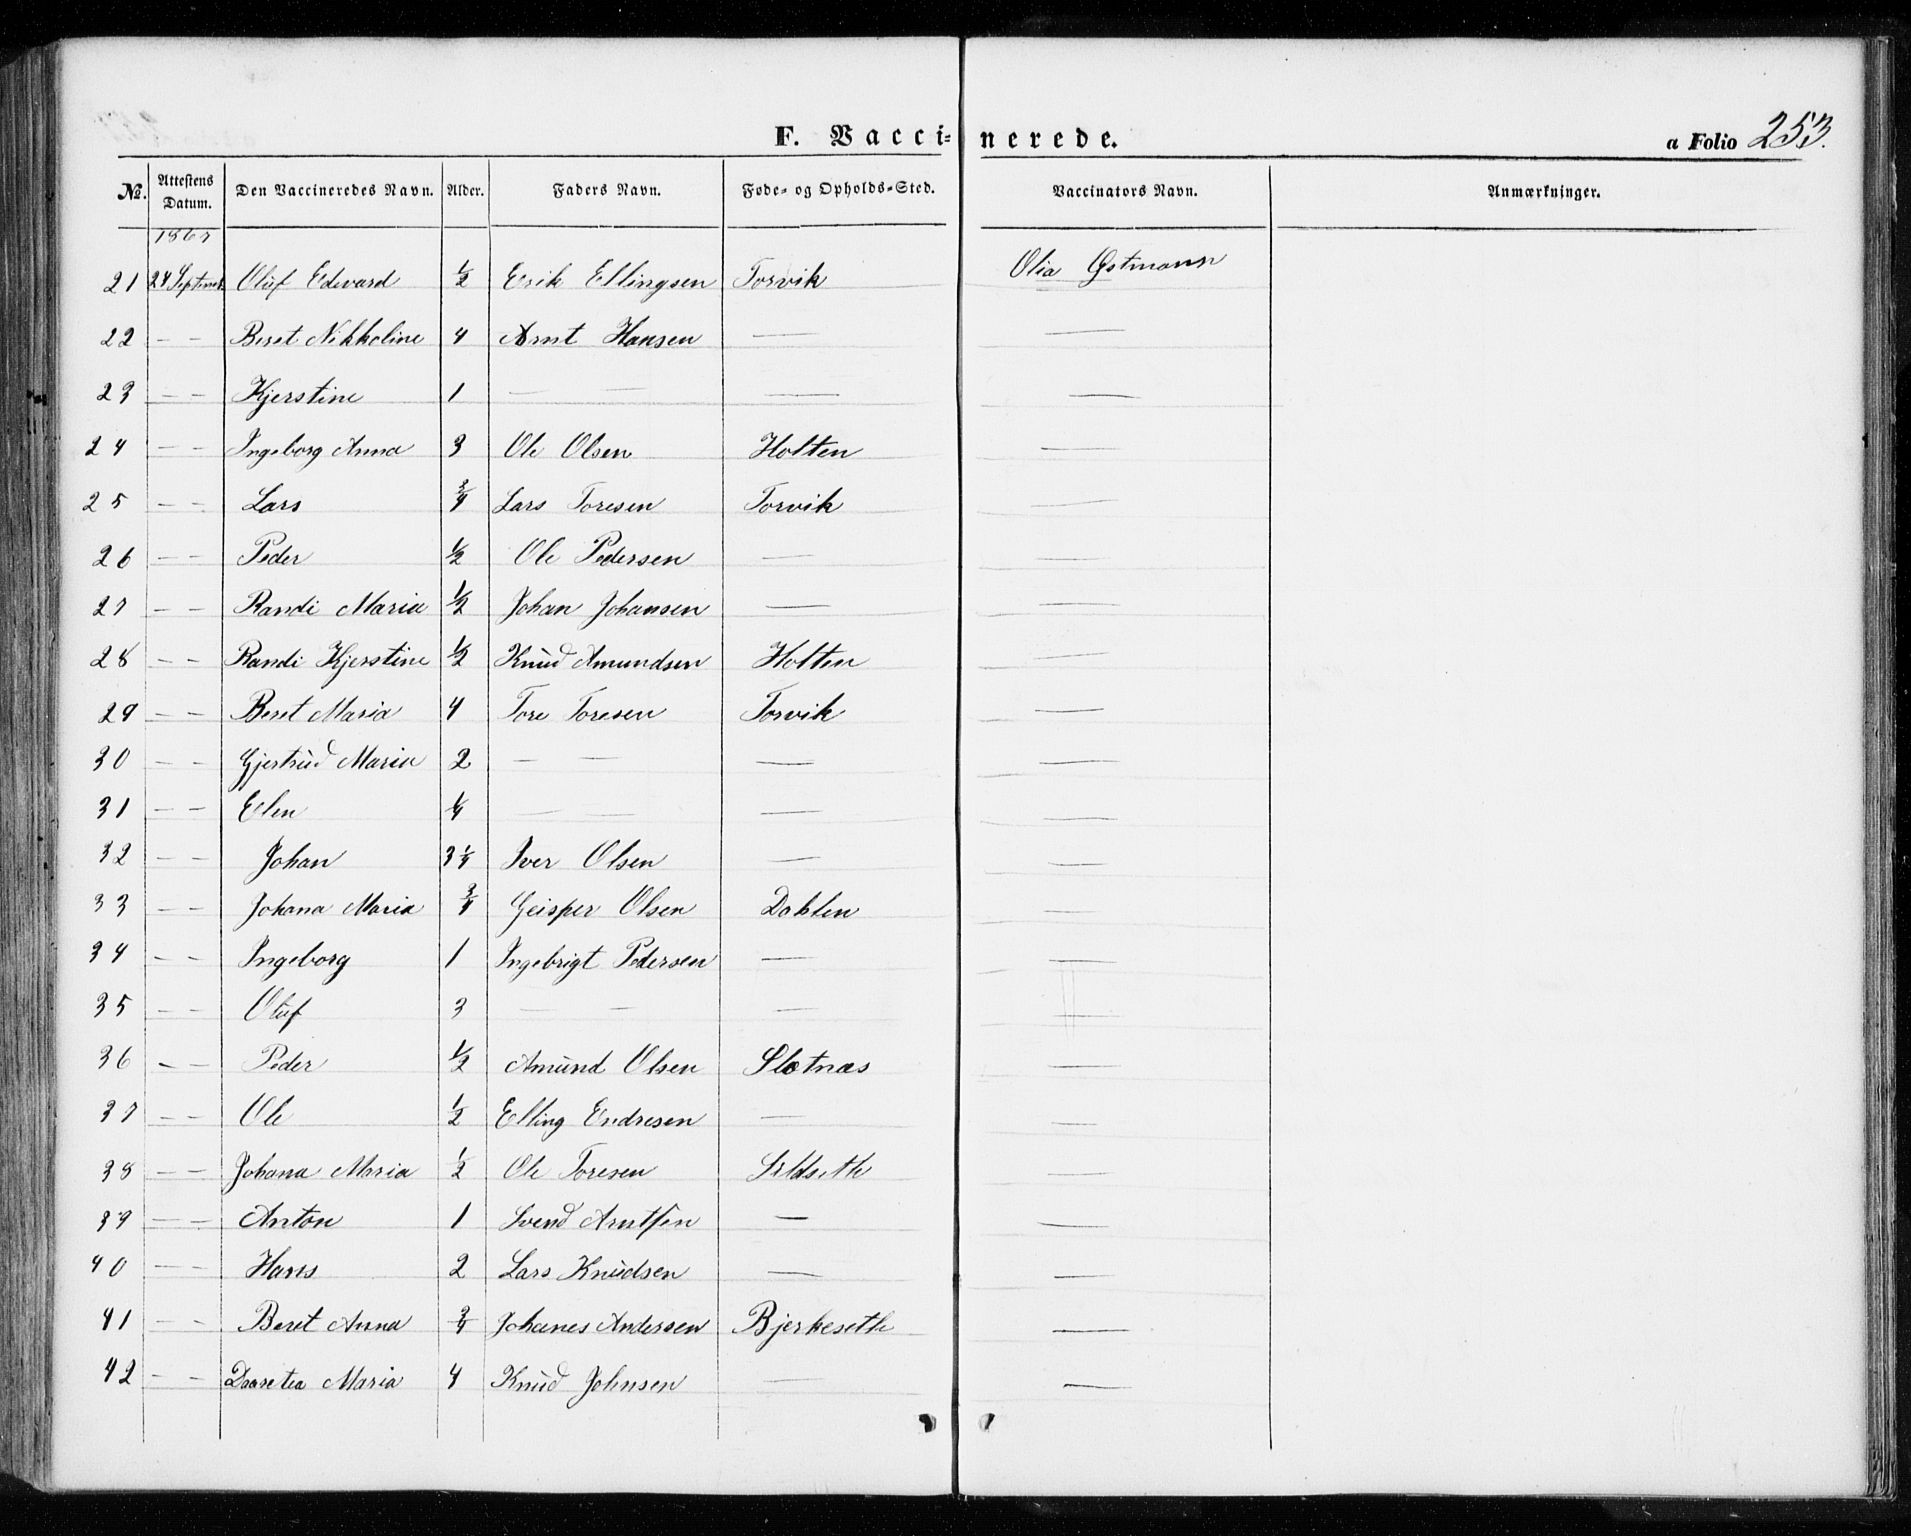 F. Vaccinerede. a Folio 253.
No. Attestens Datum. Den Vaccineredes Navn. Alder. Faders Navn. Føde- og Opholds-Sted. Vaccinators Navn. Anmærkninger.
1867
21 24 Septembr Oluf Edvard 1/2 Erik Ellingsen Torvik Olia Østmann
22 — — Beret Nikkoline 4 Arnt Hansen — —
23 — — Kjerstine 1 — — — —
24 — — Ingeborg Anna 3 Ole Olsen Holten —
25 — — Lars 3/4 Lars Toresen Torvik —
26 — — Peder 1/2 Ole Pedersen — —
27 — — Randi Maria 1/2 Johan Johansen — —
28 — — Randi Kjerstine 1/2 Knud Amundsen Holten —
29 — — Beret Maria 4 Tore Toresen Torvik —
30 — — Gjertrud Maria 2 — — — —
31 — — Elen 1/4 — — — —
32 — — Johan 3 1/4 Iver Olsen — —
33 — — Johana Maria 3/4 Geisper Olsen Dahlen —
34 — — Ingeborg 1 Ingebrigt Pedersen — —
35 — — Oluf 3 — — — —
36 — — Peder 1/2 Amund Olsen Slotnæs —
37 — — Ole 1/2 Elling Endresen — —
38 — — Johana Maria 1/2 Ole Toresen Sildseth —
39 — — Anton 1 Svend Arntsen — —
40 — — Hans 2 Lars Knudsen — —
41 Beret Anna 3/4 Johanes Andersen Bjerkeseth —
42 — — Daaretea Maria 4 Knud Johnsen — —